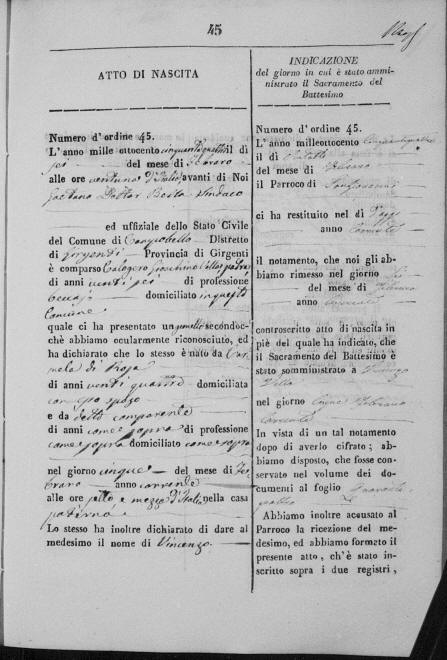 45
ATTO DI NASCITA
Numero d'ordine 45.
L'anno mille ottocento cinquantaquattro il dì
sei del mese di Febraro
alle ore ventuna d'Italia, avanti di Noi
Gaetano Dottor Bella Sindaco
ed uffiziale dello Stato Civile
del Comune di Campobello Distretto
di Girgenti Provincia di Girgenti
è comparso Calogero Villa
di anni venti sei di professione
domiciliato in questa
Comune
quale ci ha presentato un maschio secondoc-
chè abbiamo ocularmente riconosciuto, ed
ha dichiarato che lo stesso è nato da Car
mela di Roja
di anni venti quattro domiciliata
con spo sposo
e da detto comparente
di anni come sopra di professione
come sopra domiciliato come sopra
nel giorno cinque del mese di Fe
braro anno corrente
alle ore sette e mezza d'Italia nella casa
paterna
Lo stesso ha inoltre dichiarato di dare al
medesimo il nome di Vincenzo
INDICAZIONE
del giorno in cui è stato ammi-
nistrato il Sacramento del
Battesimo
Numero d'ordine 45.
L'anno milleottocento cinquantaquattro
il dì
del mese di Febraro
il Parroco di
ci ha restituito nel dì
anno corrente
il notamento, che noi gli ab-
biamo rimesso nel giorno sei
del mese di Febraro
anno corrente
controscritto atto di nascita in
piè del quale ha indicato, che
il Sacramento del Battesimo è
stato somministrato a Vincenzo
Villa
nel giorno Febraro
corrente
In vista di un tal notamento
dopo di averlo cifrato; ab-
biamo disposto, che fosse con-
servato nel volume dei do-
cumenti al foglio quaranta
Abbiamo inoltre accusato al
Parroco la ricezione del me-
desimo, ed abbiamo formato il
presente atto, ch'è stato in-
scritto sopra i due registri,